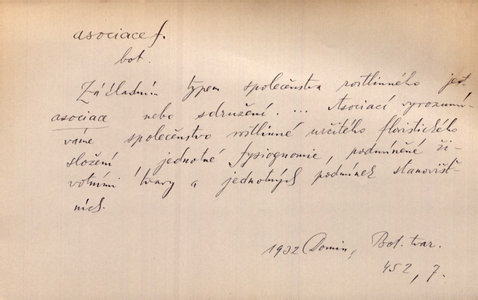 asociace f.
bot.
Základním typem společenstva rostlinného jest
asociace nebo sdružení. ... Asociací vyrozumí-
váme společenstvo rostlinné určitého floristického
složení, jednotné fysiognomie, podmíněné ži-
votními tvary a jednotných podmínek stanovišt-
ních.
1932 Domin, Bot. tvar.
452, 7.